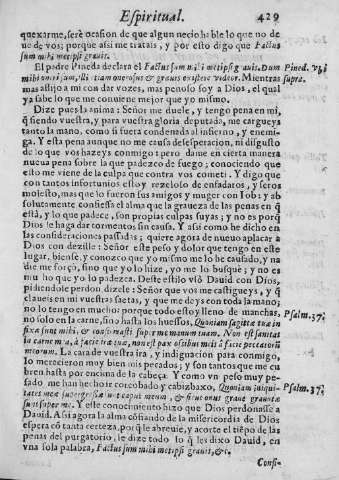 Espiritual. 429
quexarme, seré ocasion de que algun necio hable lo que no de
ue de vos; porque assi me tratais, y por esto digo que Factus
sum mihi metipsi grauis.
El padre Pineda declara el Factus sum mihi metipsi grauis. Dum Pined. vbi
mihi onerosum, illi etiam onerosus & grauis existere videor. Mientras supra.
mas aflijo a mi con dar vozes, mas penoso soy a Dios, el qual
ya sabe lo que me conuiene mejor que yo mismo.
Dize pues la anima: Señor me duele, y tengo pena en mi,
q̃ siendo vuestra, y para vuestra gloria deputada, me cargueys
tanto la mano, como si fuera condenada al infierno, y enemi-
ga. Y esta pena aunque no me causa desesperacion, ni disgusto
de lo que vos hazeys conmigo: pero dame en cierta manera
nueua pena sobre la que padezco de fuego; conociendo que
esto me viene de la culpa que contra vos cometi. Y digo que
con tantos infortunios estoy rezeloso de enfadaros, y seros
molesto, mas que lo fueron sus amigos y muger con Iob: y ab
solutamente confiessa el alma que la graueza de las penas en q̃
està, y lo que padece, son propias culpas suyas; y no es porq̃
Dios le haga dar tormentos sin causa. Y assi como he dicho en
las consideraciones passadas; quiere agora de nueuo aplacar a
Dios con dezille: Señor este peso y dolor que tengo en este
lugar, biense, y conozco que yo mismo me lo he causado, y na
die me forço, sino que yo lo hize, yo me lo busquè; y no es
mucho que yo lo padezca. Deste estilo vsò Dauid con Dios,
pidiendole perdon dizele: Señor que vos me castigueys, y q̃
claueis en mi vuestras saetas, y que me deys con toda la mano;
no lo tengo en mucho: porque todo estoy lleno de manchas, Psalm. 37;
no solo en la carne, sino hasta los huessos, Quoniam sagittæ tuæ in
fixæ sunt mihi, & confirmasti super me manum tuam. Non est sanitas
in carne mea, à facie iræ tuæ, non est pax ossibus meis à facie peccatorũ
meorum. La cara de vuestra ira, y indignacion para conmigo,
lo merecieron muy bien mis pecados; y son tantos que me cu
bren hasta por encima de la cabeça. Y como vn peso muy pe-
sado me han hecho ir corcobado y cabizbaxo, Quoniam iniqui- Psalm. 37;
tates meæ supergressæ sunt caput meum, & sicut onus graue grauatæ
sunt super me. Y este conocimiento hizo que Dios perdonasse a
Dauid. Assi agora el alma cõfiando de la misericordia de Dios
espera cõ tanta certeza, porq̃ le abreuie, y acorte el tiẽpo de las
penas del purgatorio, le dize todo lo q̃ les dixo Dauid, en
vna sola palabra, Factus sum mihi metipsi grauis, &c.
Consi-